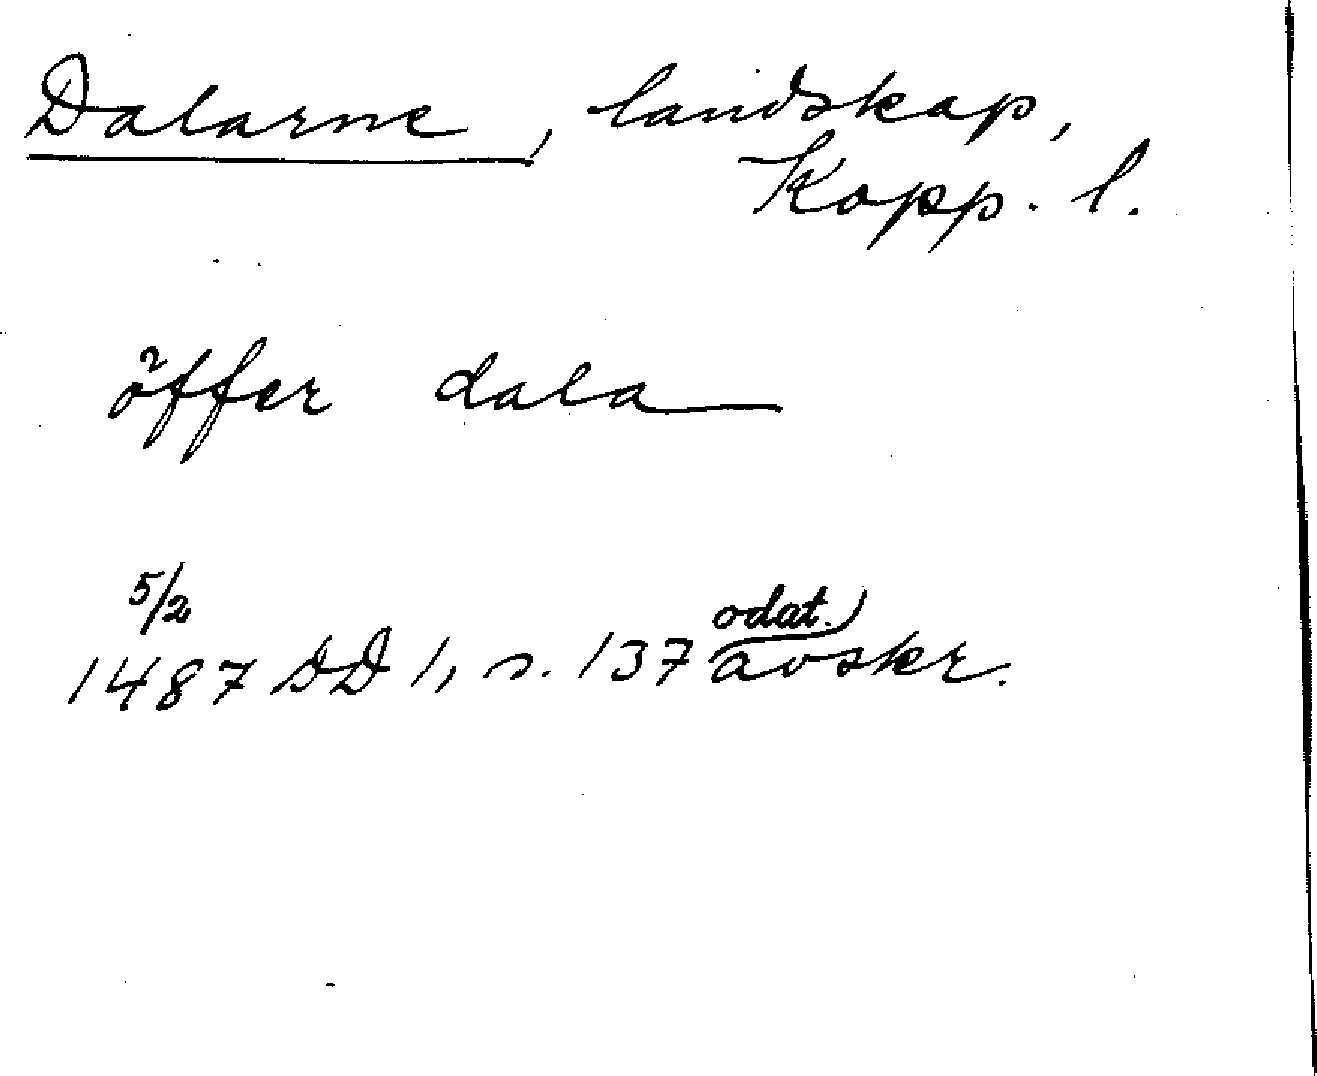 Dalarne, landskap,
Kopp. l.
öffer dala
5/2
1487 DD 1, s. 137 odat. avskr.